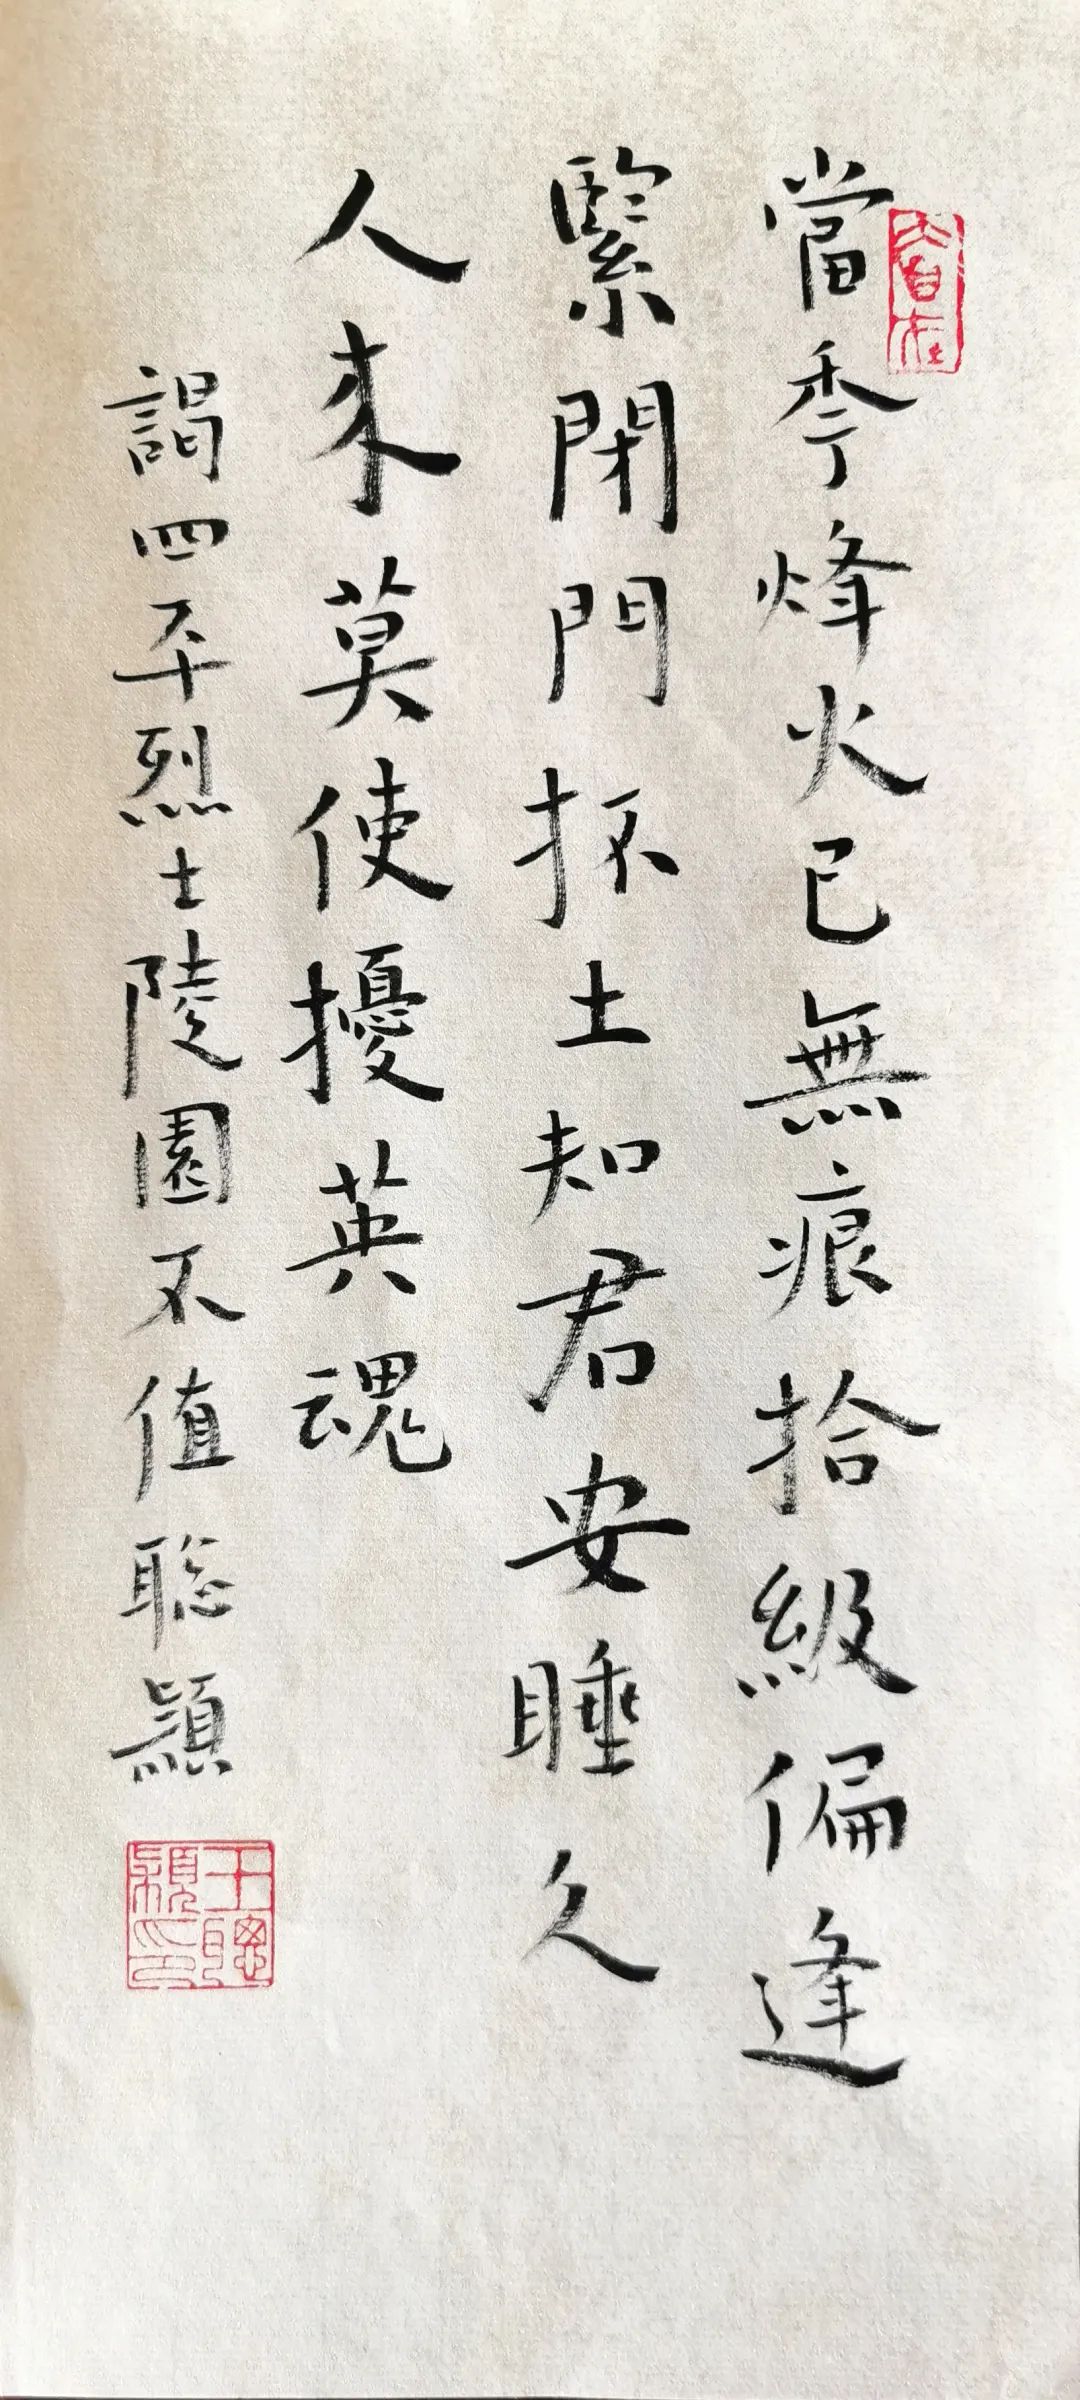 當秊烽火已無痕拾級偏逢
緊閉門抔土知君安睡久
人來莫使擾英魂
謁四平烈士陵園不值聡穎
王聰穎印